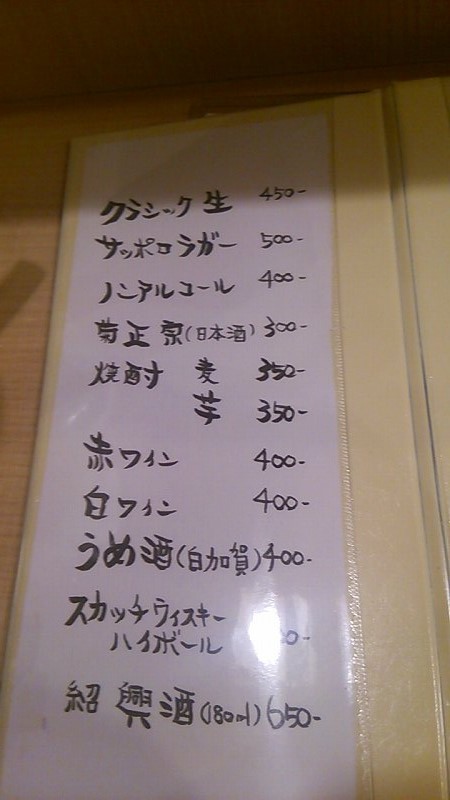 クラシック 生 450-
サッポロラガー 500-
ノンアルコール 400-
菊正宗(日本酒) 300-
焼酎 麦 350-
芋 350-
赤ワイン 400-
白ワイン 400-
うめ酒(白加賀) 400-
スカッチウィスキー
ハイボール
紹興酒(180ml) 650-